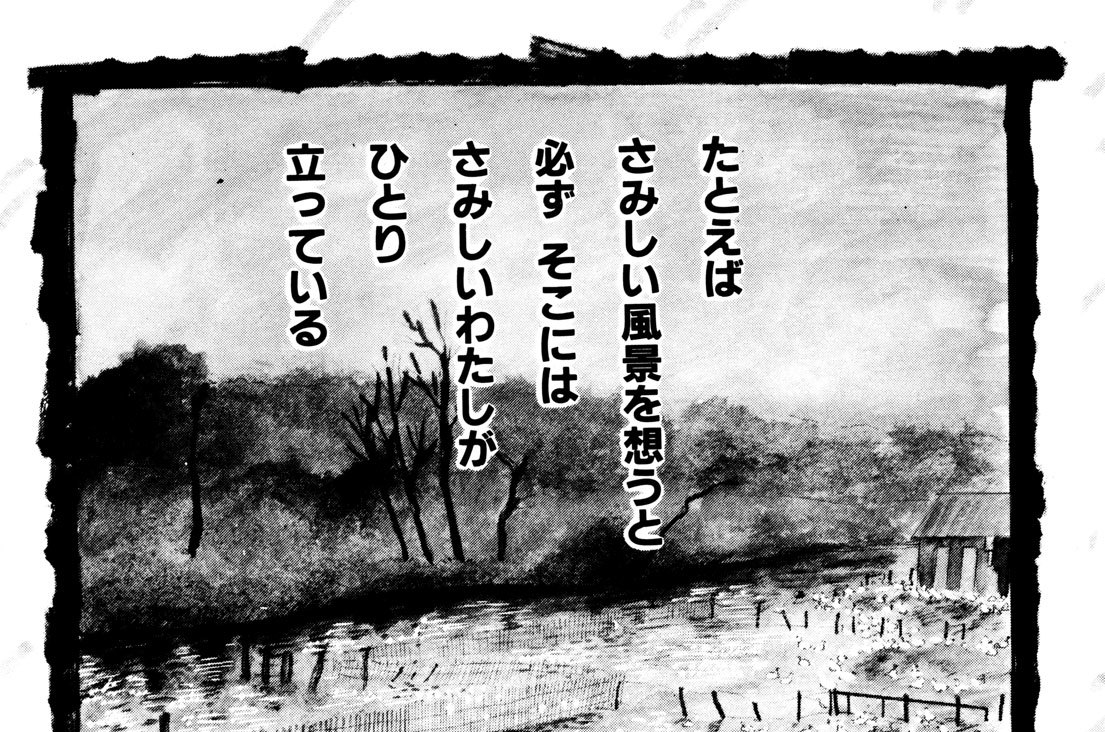 たとえば
さみしい風景を想うと
必ず そこには
さみしいわたしが
ひとり
立っている